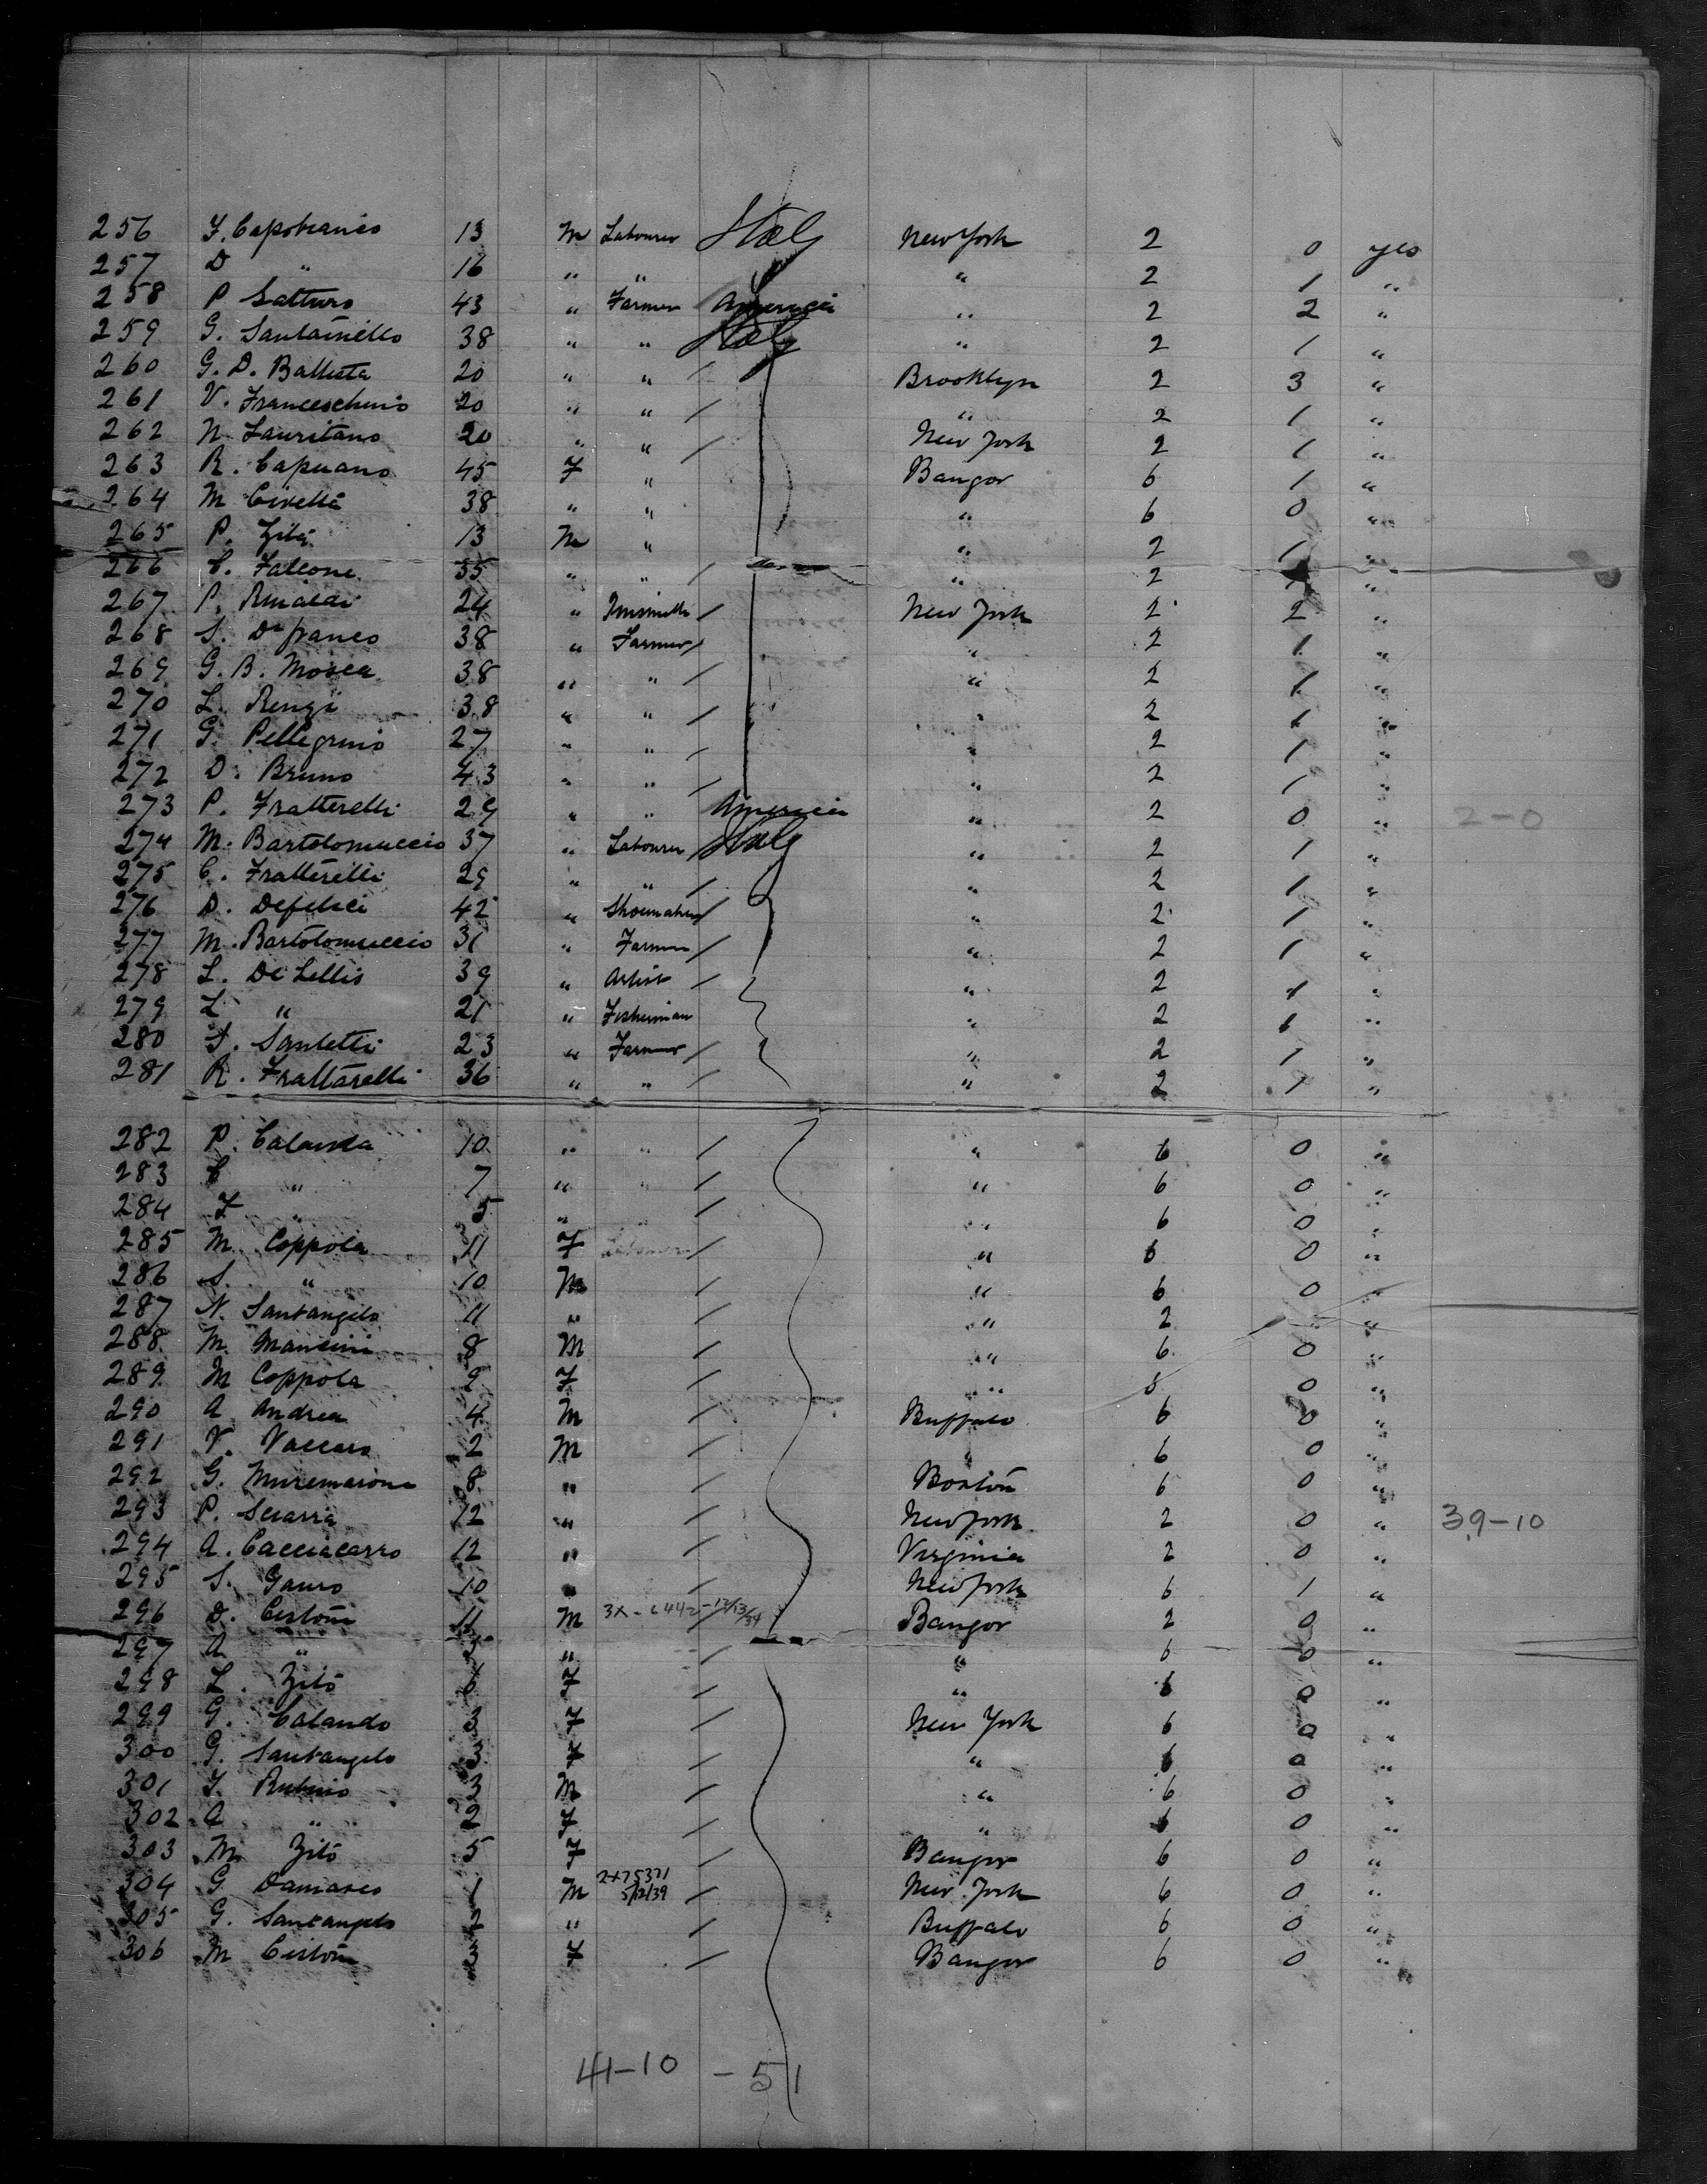 256 F. Capobianco 13 M Labourer Italy New York 2 0 yes
257 D " 16 " " " 2 1 "
258 P Satturo 43 " Farmer America " 2 2 "
259 G. Santainello 38 " " Italy " 2 1 "
260 G. D. Battista 20 " " / Brooklyn 2 3 "
261 V. Franceschino 20 " " / " 2 1 "
262 N. Lauritano 20 " " / New York 2 1 "
263 R. Capuano 45 F " Bangor 6 1 "
264 M Civetta 38 " " " 6 0 "
265 P. Zito 13 M " " 2 1 "
266 C. Falcone 55 " " / " 2 "
267 P. Rinaldi 24 " / New York 2 2 "
268 S. Defranco 38 " Farmer / " 2 1 "
269 G. B. Mosca 38 " " / " 2 1 "
270 L. Renzi 38 " " / " 2 1 "
271 G. Pellegrino 27 " " / " 2 1 "
272 D. Bruno 43 " " / " 2 1 "
273 P. Fratterelli 29 " " America " 2 0 " 2-0
274 M. Bartolomuccio 37 " Labourer Italy " 2 1 "
275 C. Fratterelli 29 " " / " 2 1 "
276 D. Defelici 42 " Shoemaker / " 2 1 "
277 M. Bartolomuccio 31 " Farmer / " 2 1 "
278 L. De Lellis 39 " Artist / " 2 1 "
279 L " 21 " Fisherman " 2 1 "
280 S. Santetti 23 " Farmer / " 2 1 "
281 R. Frattarelli 36 " " / " 2 1 "
282 P. Calanda 10 " " / " 6 0 "
283 C " 7 " " / " 6 0 "
284 F " 5 " " / " 6 0 "
285 M. Coppola 11 F Labourer / " 6 0 "
286 S. " 10 M / " 6 0 "
287 N. Santangelo 11 " / " 2 "
288 M. Mancini 8 M / " 6 0 "
289 M Coppola 9 F / " 6 0 "
290 A Andrea 4 M / Buffalo 6 0 "
291 V. Vaccaro 2 M / " 6 0 "
292 G. Muremarone 8 " / Boston 6 0 "
293 P. Sciarra 12 " / New York 2 0 " 39-10
294 A. Cacciacarro 12 " / Virginia 2 0 "
295 S. Gauro 10 " / New York 6 1 "
296 D. Cistoni 11 M 3X-6442-12/13/34 Bangor 2 0 "
297 A " 5 " / " 6 0 "
298 L. Zito 6 F / " 6 0 "
299 G. Calando 3 F / New York 6 0 "
300 G. Santangelo 3 F / " 6 0 "
301 F. Rubino 3 M / " 6 0 "
302 A " 2 F / " 6 0 "
303 M. Zito 5 F / Bangor 6 0 "
304 G Damasco 1 M 2X75371 5/12/39 / New York 6 0 "
305 G. Santangelo 2 " / Buffalo 6 0 "
306 M Cistoni 2 F / Bangor 6 0 "
41-10 - 51